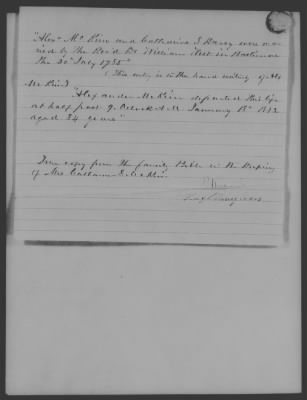 "Alexr McKim and Catharine S. Davey were mar-
ried by the Revd Dr. William West in Baltimore
the 30th July 1785"
(This entry is in the hand writing of Alexr
McKim)
"Alexander McKim departed this life
at half past 9 oClock A.M. January 18th 1832
aged 84 years"
True copy from the family Bible in the keeping
of Mrs. Catharine McKim